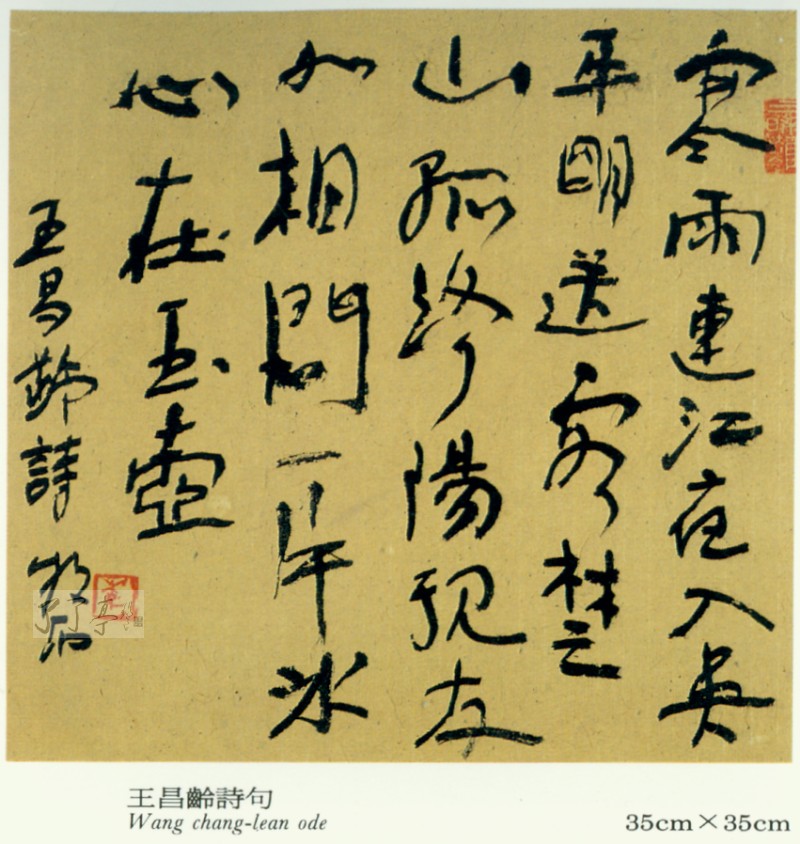 寒雨連江夜入吳
平明送客楚
山孤洛陽親友
如相問一片冰
心在玉壺
王昌齡詩
王昌齡詩句
Wang chang-lean ode
35cm×35cm